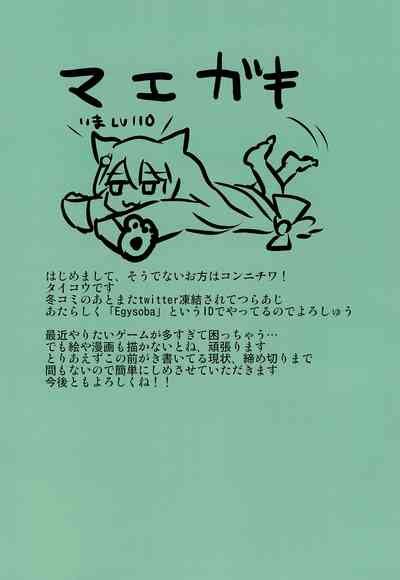 マエガキ
いまLV110
はじめまして、そうでないお方はコンニチワ！
タイコウです
冬コミのあとまたtwitter凍結されてつらあじ
あたらしく「Egysoba」というIDでやってるのでよろしゅう
最近やりたいゲームが多すぎて困っちゃう…
でも絵や漫画も描かないとね、頑張ります
とりあえずこの前がき書いてる現状、締め切りまで
間もないので簡単にしめさせていただきます
今後ともよろしくね！！